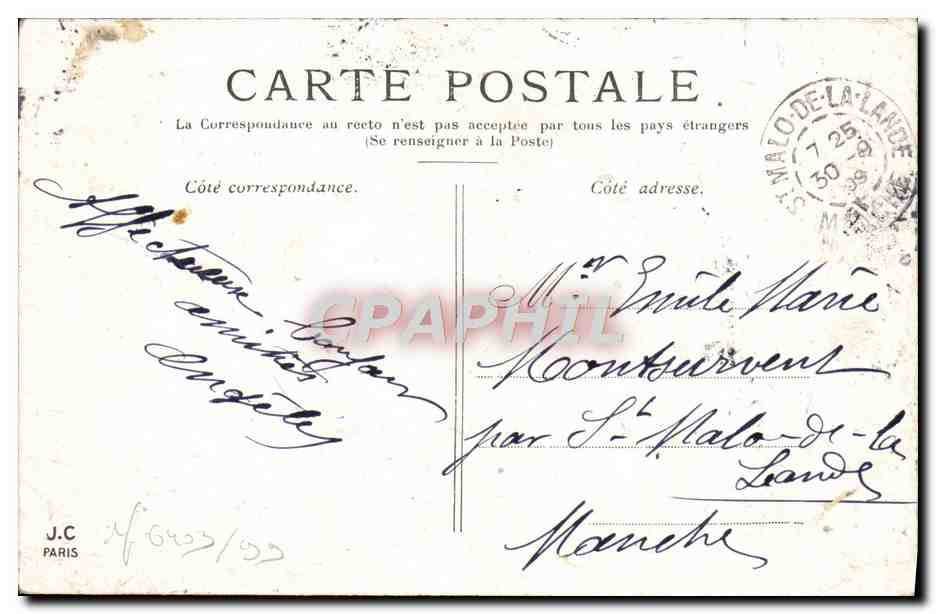 CARTE POSTALE.
La Correspondance au recto n'est pas acceptée par tous les pays étrangers
(Se renseigner à la Poste)
Côté correspondance.
Côté adresse.
ST MALO-DE-LA-LANDE
7 25
30 -9
09
MANCHE
Affectueuse
amitiés
Angèle
Mr. Emile Marie
Montsurvent
par St. Malo-de-la
Lande
Manche
CPAPHIL
J.C
PARIS